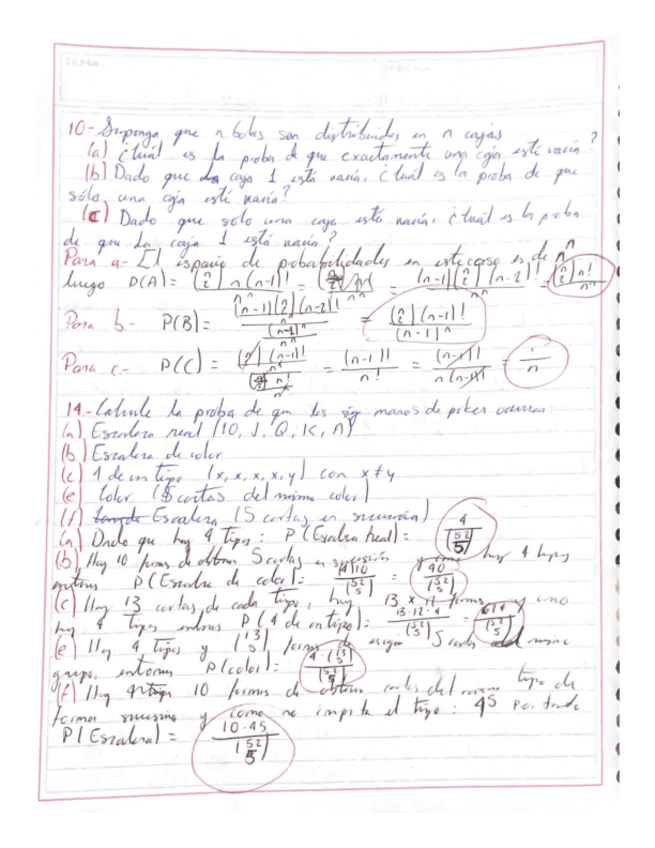 TEMA FECHA
10- Suponga que n bolas son distribuidas en n cajas
(a) ¿Cuál es la proba de que exactamente una caja esté vacía?
(b) Dado que la caja 1 está vacía, ¿Cuál es la proba de que
sólo una caja esté vacía?
(c) Dado que solo una caja está vacía, ¿Cuál es la proba
de que la caja 1 está vacía?
Para a- El espacio de probabilidades en este caso es de n^n
luego P(A) = = \frac{(n-1)\binom{n}{2}(n-2)!}{n^n} = \frac{\binom{n}{2} n!}{n^n}
Para b- P(B) = = \frac{\binom{n}{2}(n-1)!}{(n-1)^n}
Para c- P(C) = = \frac{(n-1)!}{n!} = \frac{(n-1)!}{n(n-1)!} = \frac{1}{n}
14- Calcule la proba de que las manos de poker ocurran:
(a) Escalera real (10, J, Q, K, A)
(b) Escalera de color
(c) 4 de un tipo (x, x, x, x, y) con x ≠ y
(e Color (5 cartas del mismo color)
(f) Escalera (5 cartas en secuencia)
(a) Dado que hay 4 tipos: P(Escalera Real) = \frac{4}{\binom{52}{5}}
(b) Hay 10 formas de obtener 5 cartas en y como hay 4 tipos
entons P(Escalera de color) = \frac{(4)10}{\binom{52}{5}} = \frac{40}{\binom{52}{5}}
(c) Hay 13 cartas de cada tipo, hay 13 x formas y como
hay 4 tipos entons P(4 de un tipo) = \frac{13·12·4}{\binom{52}{5}} = \frac{624}{\binom{52}{5}}
(e) Hay 4 tipos y \binom{13}{5} formas de escoger 5 cartas del mismo
grupo, entons P(color) = \frac{4·\binom{13}{5}}{\binom{52}{5}}
(f) Hay 10 formas de obtener cartas del mismo tipo de
formar secuencia y como no importa el tipo: 4^5 por tando
P(Escalera) = \frac{10·4^5}{\binom{52}{5}}